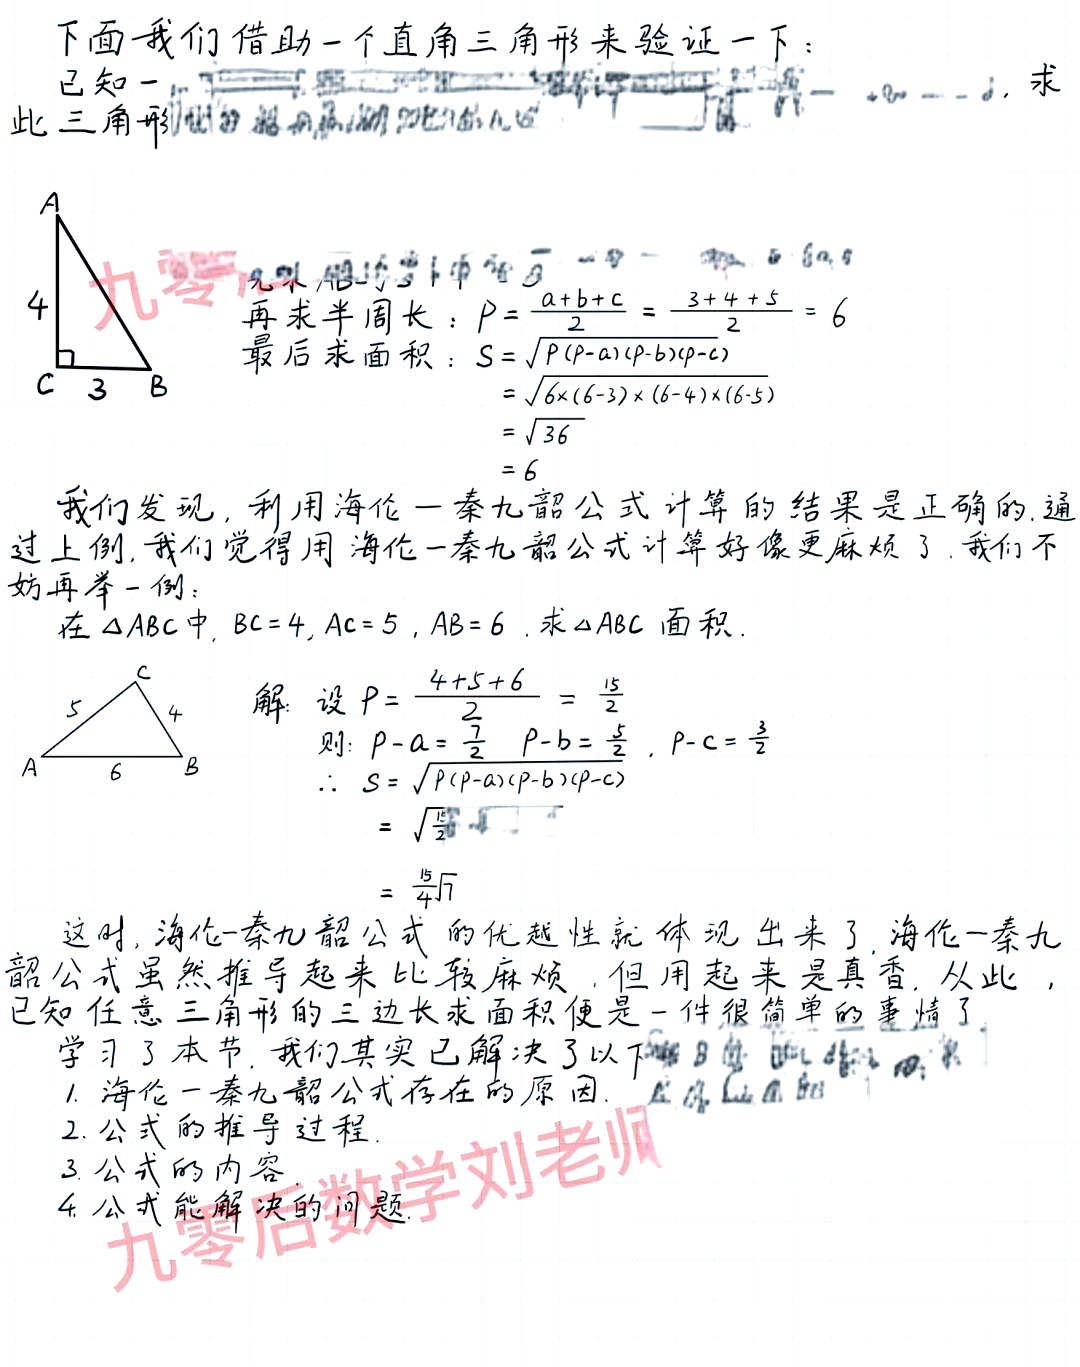 下面我们借助一个直角三角形来验证一下:
已知一 求
此三角形
A
4
C 3 B
再求半周长: P = (a+b+c)/2 = (3+4+5)/2 = 6
最后求面积: S = √(P(P-a)(P-b)(P-c))
= √(6×(6-3)×(6-4)×(6-5))
= √36
= 6
我们发现, 利用海伦一秦九韶公式计算的结果是正确的.通
过上例, 我们觉得用海伦一秦九韶公式计算好像更麻烦了. 我们不
妨再举一例:
在△ABC中, BC=4, AC=5, AB=6. 求△ABC面积.
C
5 4
A 6 B
解: 设P = (4+5+6)/2 = 15/2
则: P-a = 7/2 P-b = 5/2, P-c = 3/2
∴ S = √(P(P-a)(P-b)(P-c))
= √15/2
= 15/4√7
这时, 海伦一秦九韶公式的优越性就体现出来了. 海伦一秦九
韶公式虽然推导起来比较麻烦, 但用起来是真香. 从此,
已知任意三角形的三边长求面积便是一件很简单的事情了
学习了本节, 我们其实已解决了以下
1. 海伦一秦九韶公式存在的原因.
2. 公式的推导过程.
3. 公式的内容.
4. 公式能解决的问题.
九零后数学刘老师